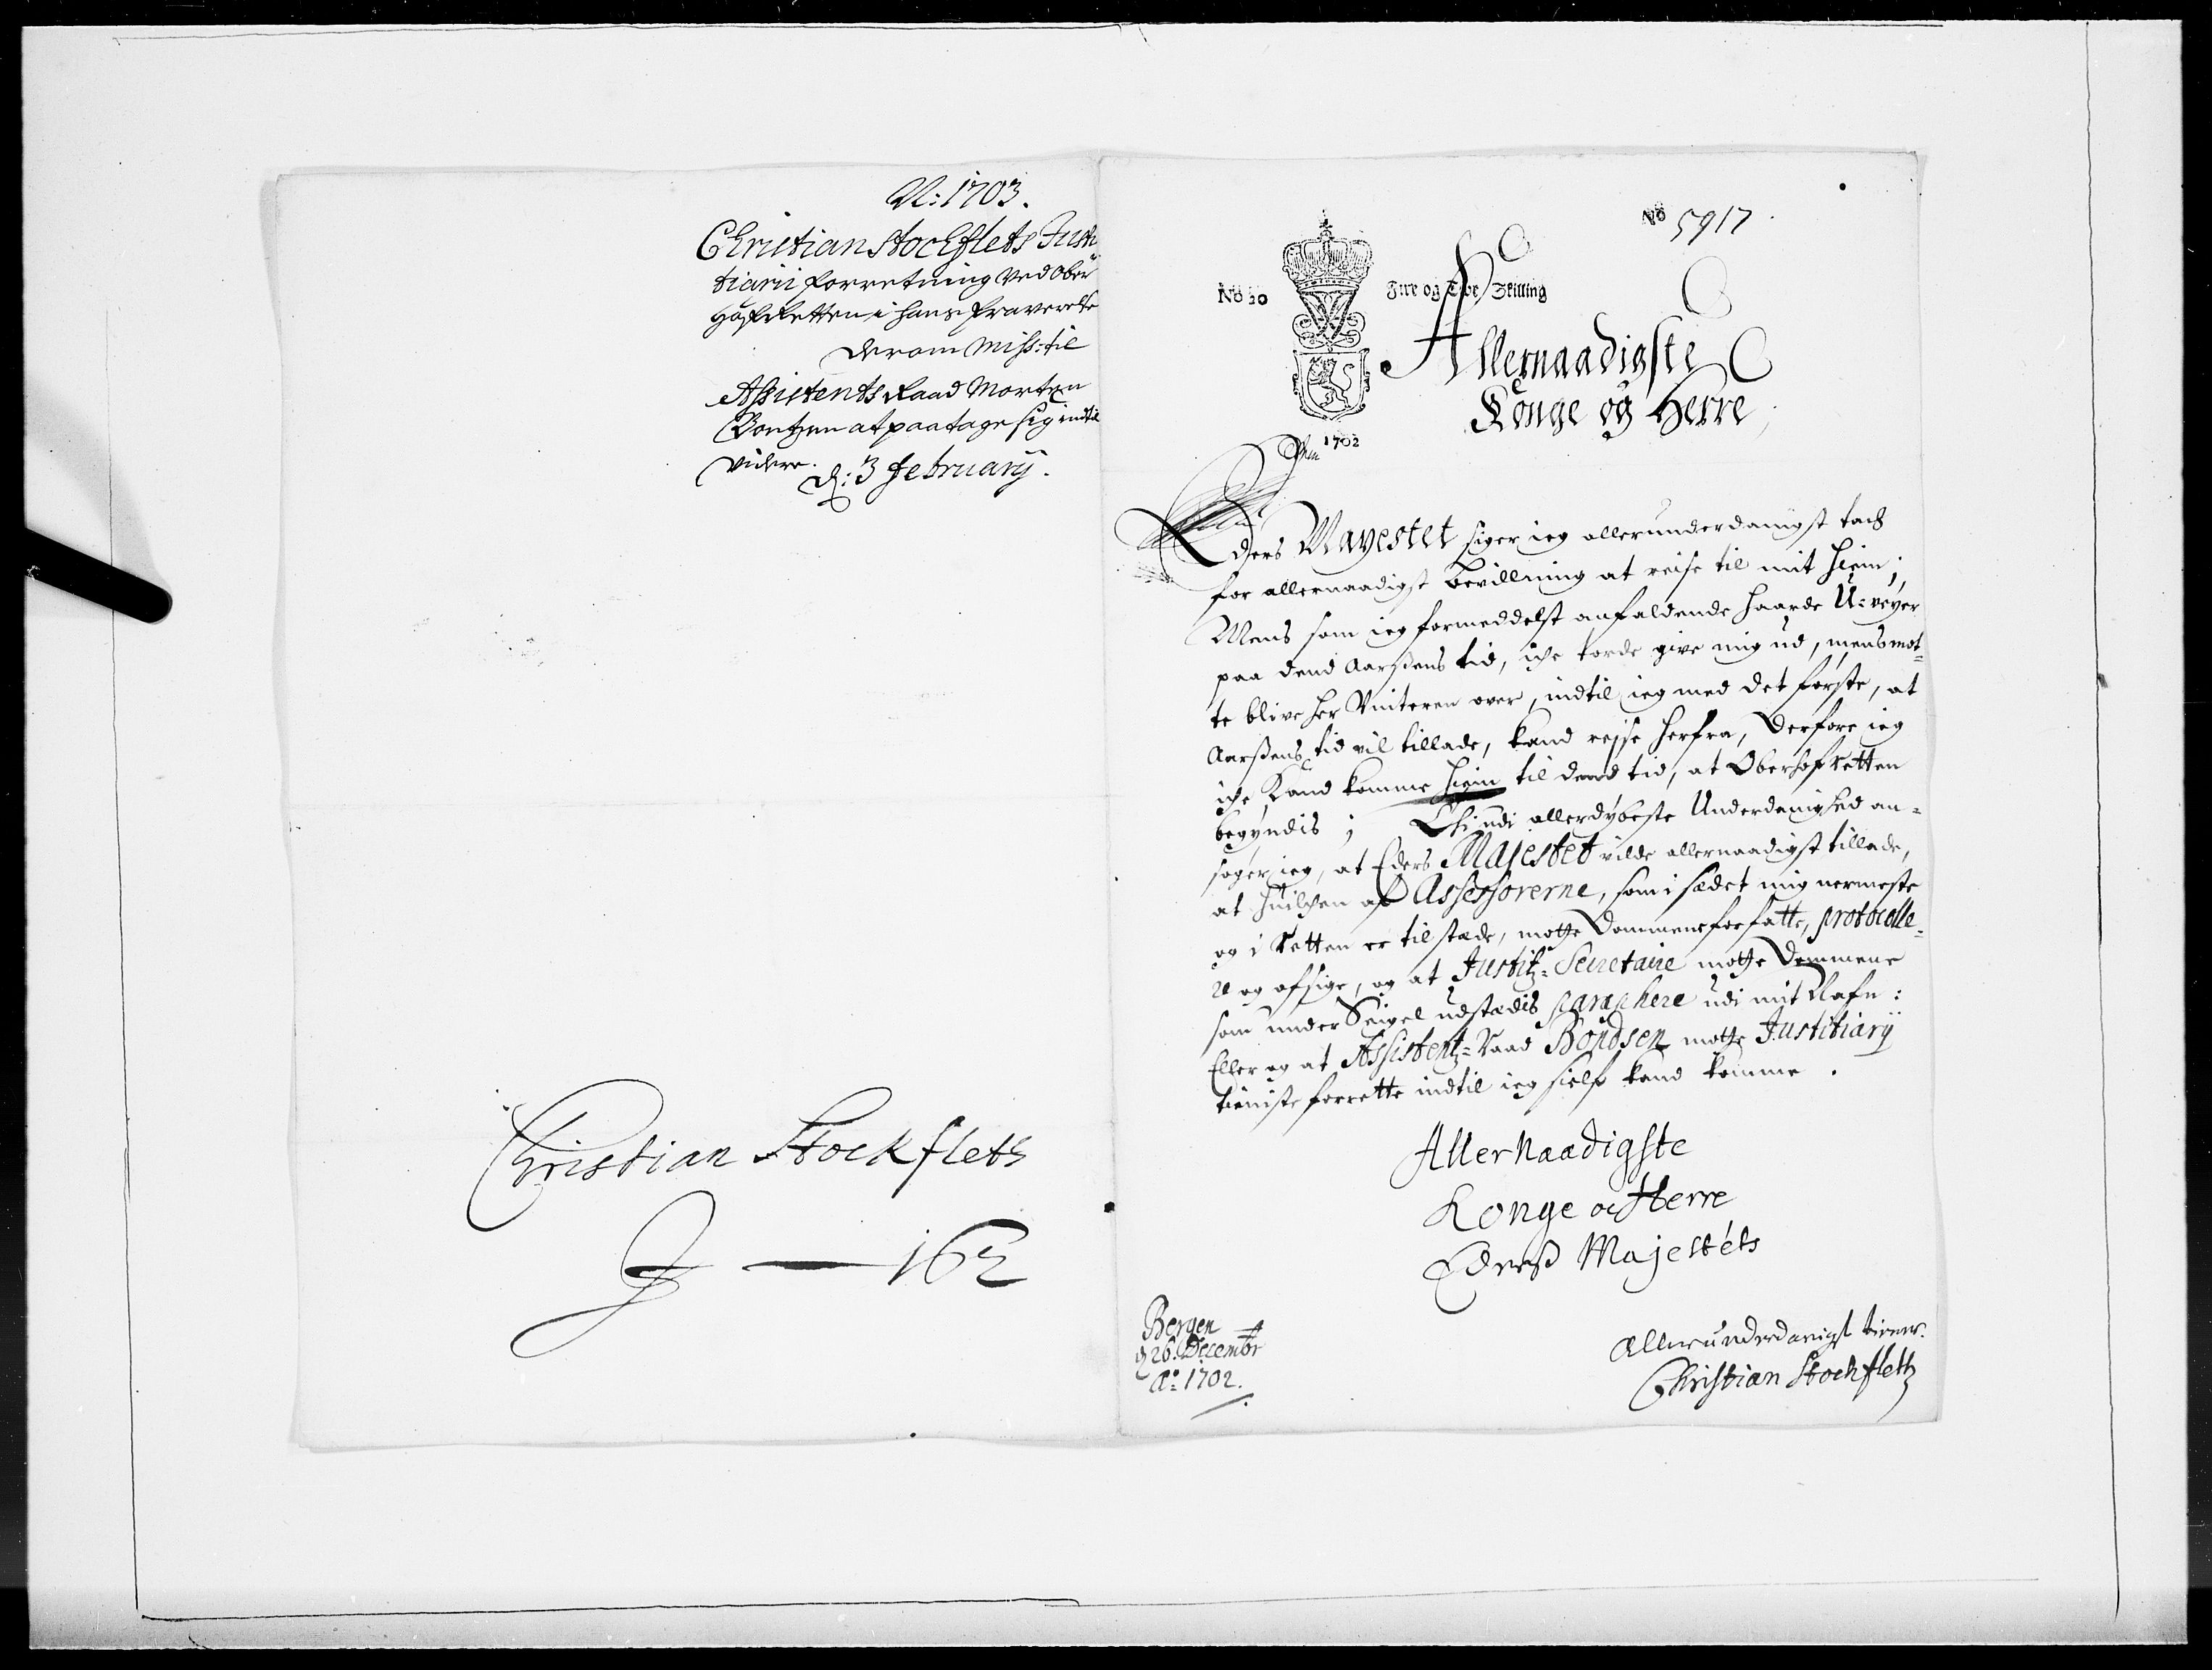 A: 1703.
Christian Stockflets Justi
tiarii forretning ved Ober
Hofretten i hans fraverelse
derom Miss: til
Assistents Raad Morten
Bontzen at paatage sig indtil
videre.
d: 3 February.
Christian Stockfleth
162
No 5917.
No 20
Fire og Tive Skilling
1702
Allernaadigste
Konge og Herre,
Eders Mayestet siger ieg allerunderdanigst tack
for allernaadigst bevillning at reise til mit hiem;
Mens som ieg formeddelst anfaldende haarde U=veyer
paa dend Aarsens tid, icke torde give mig ud, mens mot=
te blive her Vinteren over, indtil ieg med det første, at
Aarsens tid vil tillade, kand rejse herfra, derfore ieg
icke Kand komme hiem til dend tid, at Oberhofretten
begyndis; Thi udi allerdybeste Underdanighed an=
søger ieg, at Eders Majestet vilde allernaadigst tillade,
at huilchen af Assessorerne, som i sædet mig nermeste
og i Retten er tilstæde, motte Dommene forfatte, protocolle=
re og afsige, og at Justitz=Secretaire motte Dommene
som under Seigel udstædis paraphere udi mit Nafn:
Eller og at Assistentz=Raad Bondsen motte Justitiarij
tieniste forrette indtil ieg sielf kand komme.
Allernaadigste
Konge oc Herre
Eders Majestets
Bergen
d 26. Decembr
Ao: 1702.
Allerunderdanigst tiener.
Christian Stockfleth